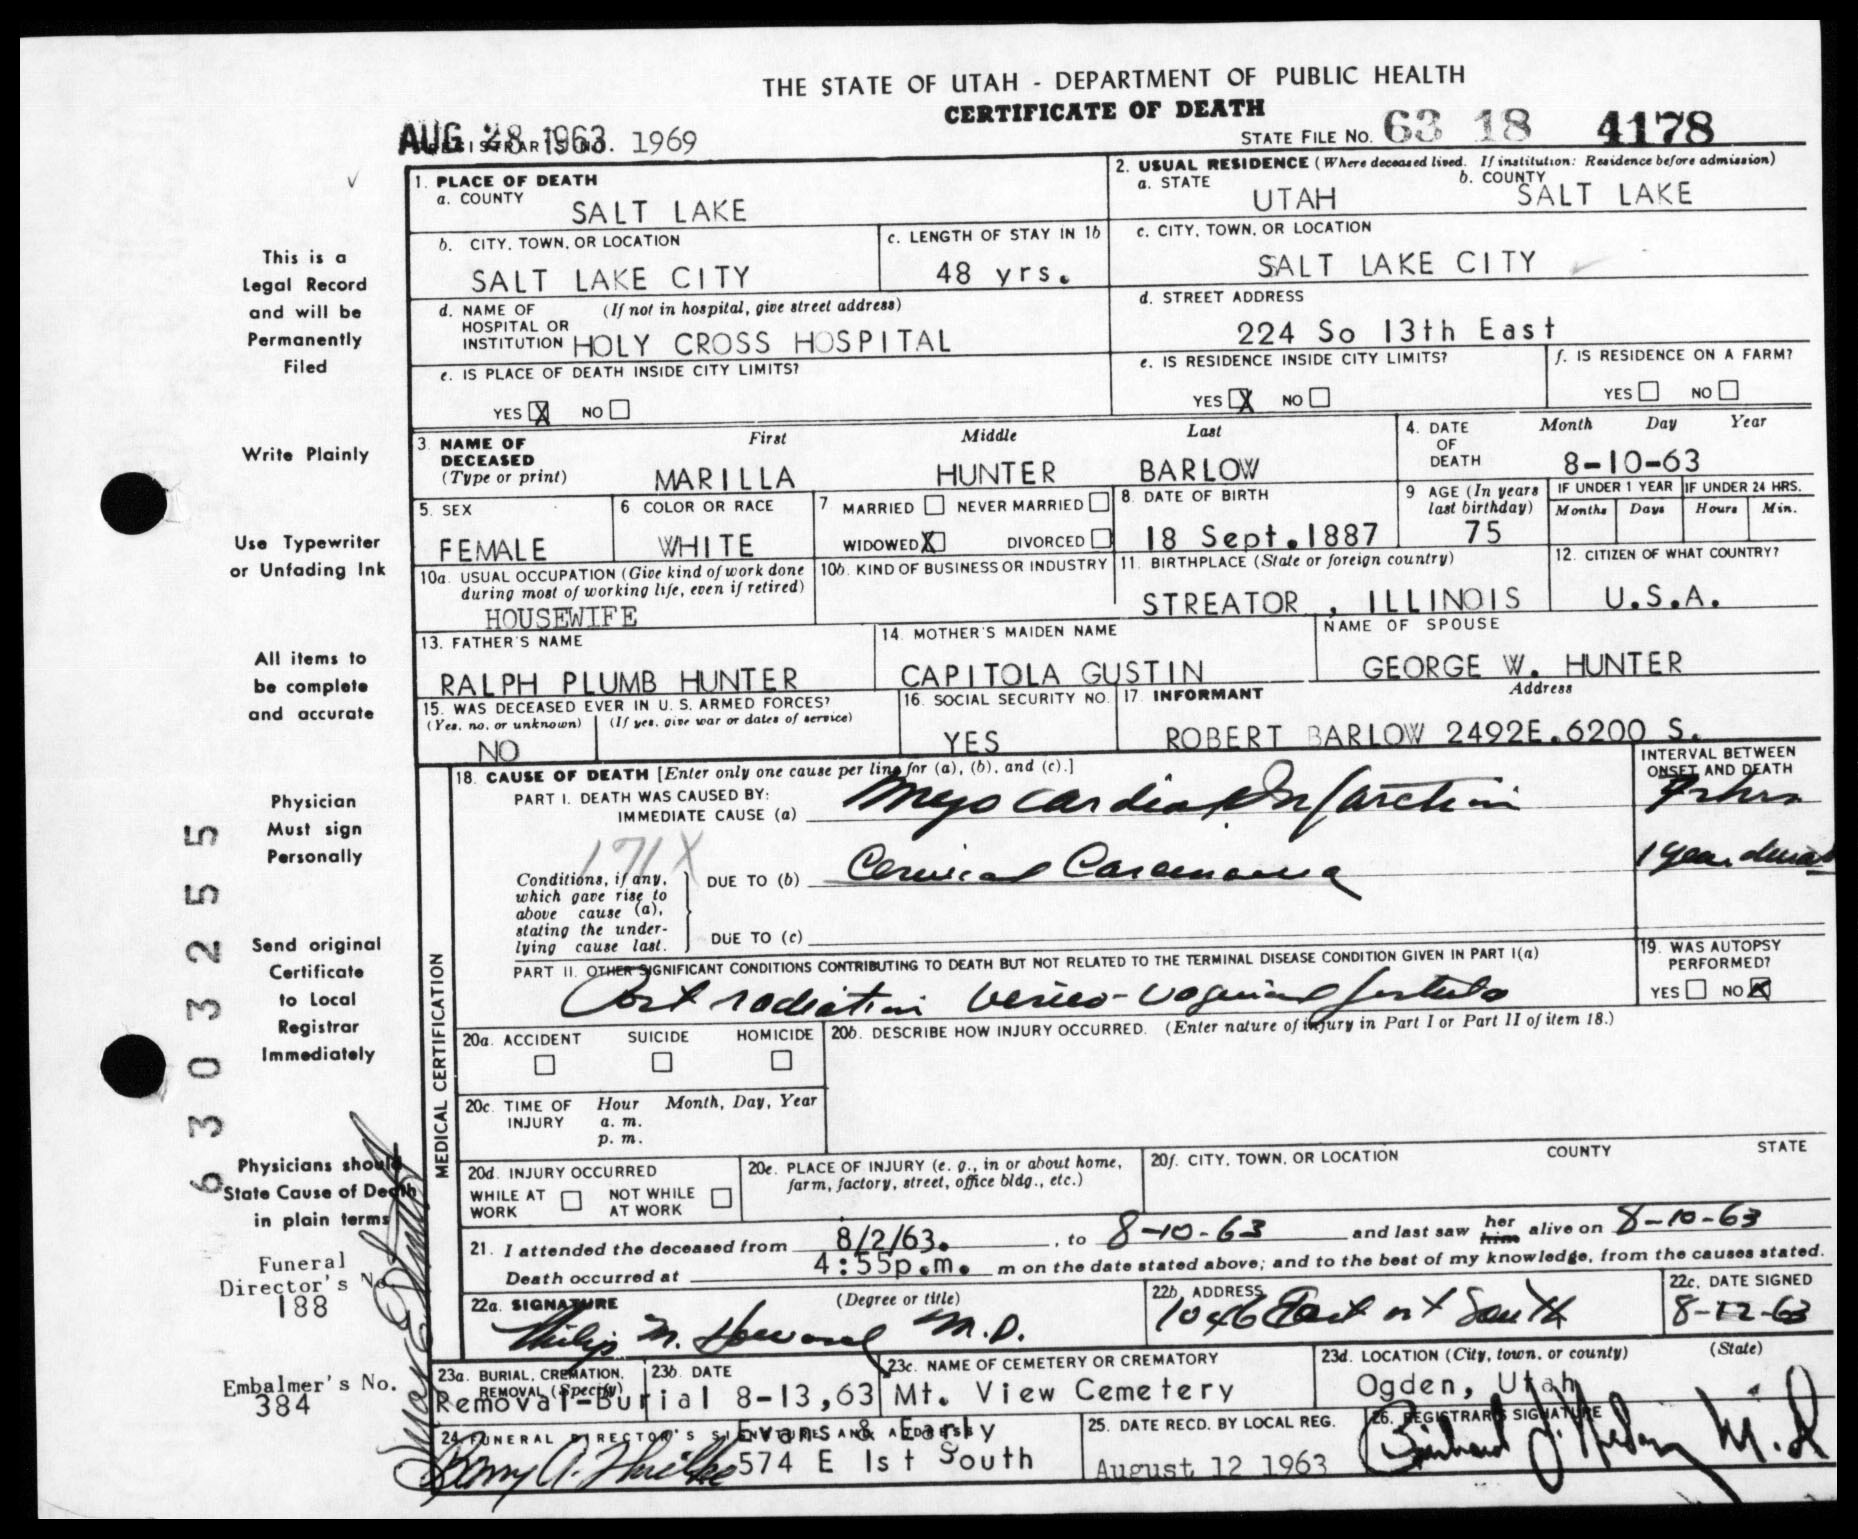 THE STATE OF UTAH - DEPARTMENT OF PUBLIC HEALTH
CERTIFICATE OF DEATH
AUG 28 1963
REGISTRAR'S NO. 1969
STATE FILE NO. 63 18 4178
1. PLACE OF DEATH
a. COUNTY
SALT LAKE
2. USUAL RESIDENCE (Where deceased lived. If institution: Residence before admission)
a. STATE
UTAH
b. COUNTY
SALT LAKE
b. CITY, TOWN, OR LOCATION
SALT LAKE CITY
c. LENGTH OF STAY IN 1b
48 yrs.
c. CITY, TOWN, OR LOCATION
SALT LAKE CITY
d. NAME OF (If not in hospital, give street address)
HOSPITAL OR
INSTITUTION HOLY CROSS HOSPITAL
d. STREET ADDRESS
224 So 13th East
e. IS PLACE OF DEATH INSIDE CITY LIMITS?
YES X NO
e. IS RESIDENCE INSIDE CITY LIMITS?
YES X NO
f. IS RESIDENCE ON A FARM?
YES NO
3. NAME OF
DECEASED
(Type or print)
First Middle Last
MARILLA HUNTER BARLOW
4. DATE
OF
DEATH
Month Day Year
8-10-63
5. SEX
FEMALE
6 COLOR OR RACE
WHITE
7 MARRIED NEVER MARRIED
WIDOWED X DIVORCED
8. DATE OF BIRTH
18 Sept.1887
9 AGE (In years
last birthday)
75
IF UNDER 1 YEAR
Months Days
IF UNDER 24 HRS.
Hours Min.
10a. USUAL OCCUPATION (Give kind of work done
during most of working life, even if retired)
HOUSEWIFE
10b. KIND OF BUSINESS OR INDUSTRY
11. BIRTHPLACE (State or foreign country)
STREATOR , ILLINOIS
12. CITIZEN OF WHAT COUNTRY?
U.S.A.
13. FATHER'S NAME
RALPH PLUMB HUNTER
14. MOTHER'S MAIDEN NAME
CAPITOLA GUSTIN
NAME OF SPOUSE
GEORGE W. HUNTER
15. WAS DECEASED EVER IN U. S. ARMED FORCES?
(Yes, no, or unknown) (If yes, give war or dates of service)
NO
16. SOCIAL SECURITY NO.
YES
17. INFORMANT Address
ROBERT BARLOW 2492E.6200 S.
MEDICAL CERTIFICATION
18. CAUSE OF DEATH [Enter only one cause per line for (a), (b), and (c).]
INTERVAL BETWEEN
ONSET AND DEATH
PART I. DEATH WAS CAUSED BY:
IMMEDIATE CAUSE (a) Myocardial Infarction
171X
Conditions, if any,
which gave rise to
above cause (a),
stating the under-
lying cause last.
DUE TO (b) Cervical Carcinoma
1 year
DUE TO (c)
PART II. OTHER SIGNIFICANT CONDITIONS CONTRIBUTING TO DEATH BUT NOT RELATED TO THE TERMINAL DISEASE CONDITION GIVEN IN PART I(a)
Post radiation vesico-vaginal fistula
19. WAS AUTOPSY
PERFORMED?
YES NO X
20a. ACCIDENT SUICIDE HOMICIDE
20b. DESCRIBE HOW INJURY OCCURRED. (Enter nature of injury in Part I or Part II of item 18.)
20c. TIME OF
INJURY
Hour Month, Day, Year
a. m.
p. m.
20d. INJURY OCCURRED
WHILE AT
WORK
NOT WHILE
AT WORK
20e. PLACE OF INJURY (e. g., in or about home,
farm, factory, street, office bldg., etc.)
20f. CITY, TOWN, OR LOCATION COUNTY STATE
21. I attended the deceased from 8/2/63. , to 8-10-63 and last saw her him alive on 8-10-63
Death occurred at 4:55p.m. m on the date stated above; and to the best of my knowledge, from the causes stated.
22a. SIGNATURE (Degree or title)
Philip M. Howard M.D.
22b. ADDRESS
1046 East 1st South
22c. DATE SIGNED
8-12-63
23a. BURIAL, CREMATION,
REMOVAL (Specify)
Removal-Burial
23b. DATE
8-13,63
23c. NAME OF CEMETERY OR CREMATORY
Mt. View Cemetery
23d. LOCATION (City, town, or county) (State)
Ogden, Utah
24 FUNERAL DIRECTOR'S SIGNATURE AND ADDRESS
Evans & Early
574 E 1st South
25. DATE RECD. BY LOCAL REG.
August 12 1963
26. REGISTRAR'S SIGNATURE
M.D.
This is a
Legal Record
and will be
Permanently
Filed
Write Plainly
Use Typewriter
or Unfading Ink
All items to
be complete
and accurate
Physician
Must sign
Personally
Send original
Certificate
to Local
Registrar
Immediately
Physicians should
State Cause of Death
in plain terms
Funeral
Director's No
188
Embalmer's No.
384
6303255